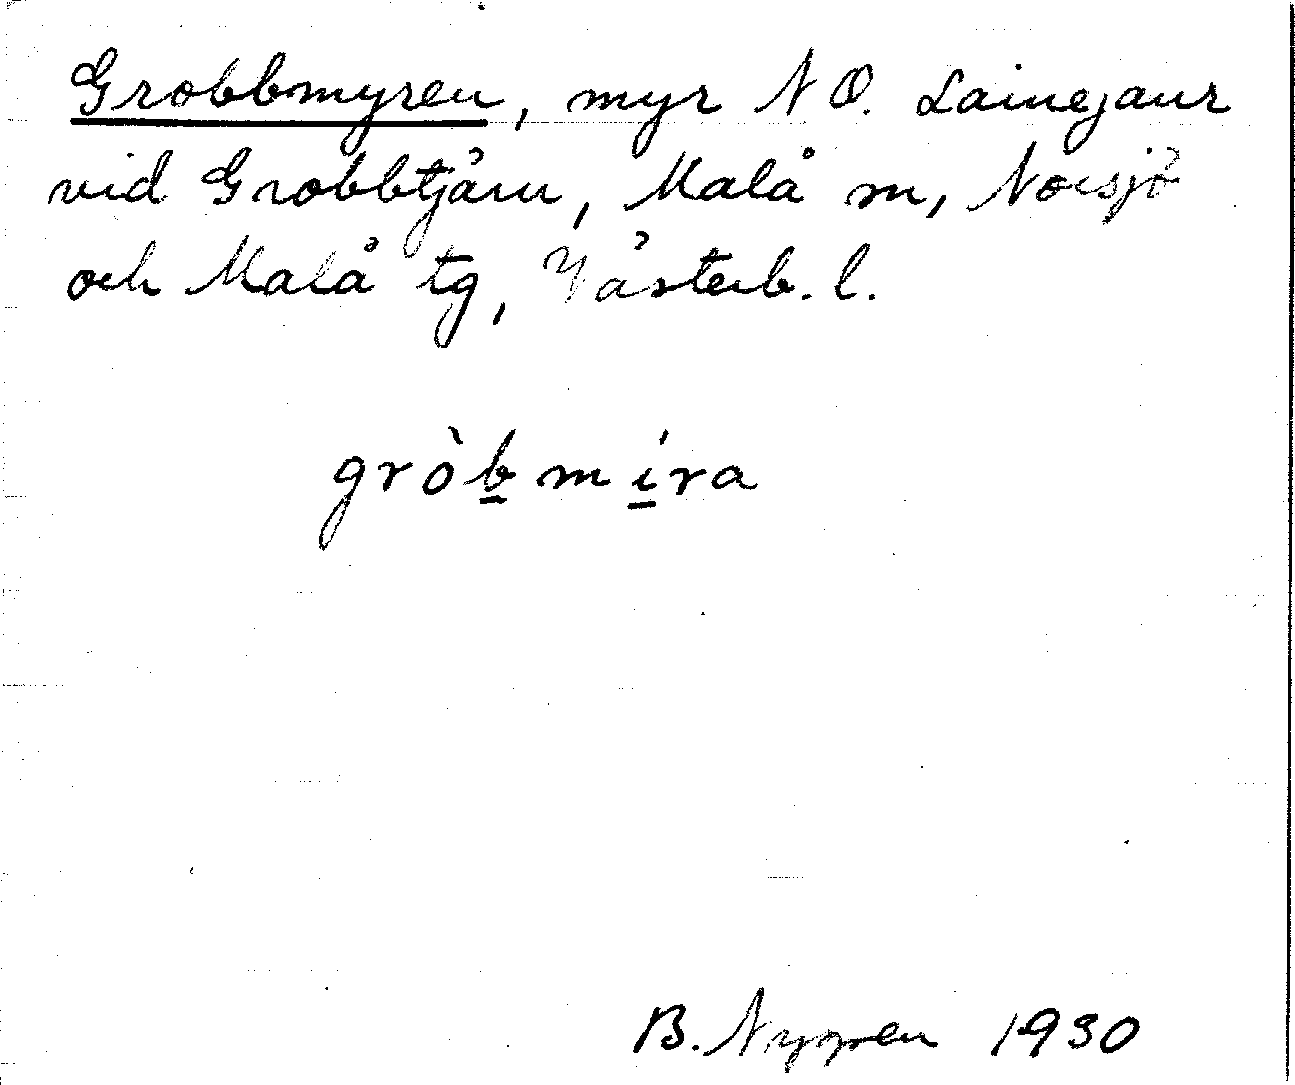 Grobbmyren, myr N O. Lainejaur
vid Grobbtjärn, Malå m, Norsjö
och Malå tg, Västerb. l.
gròbmíra
B. Nygren 1930